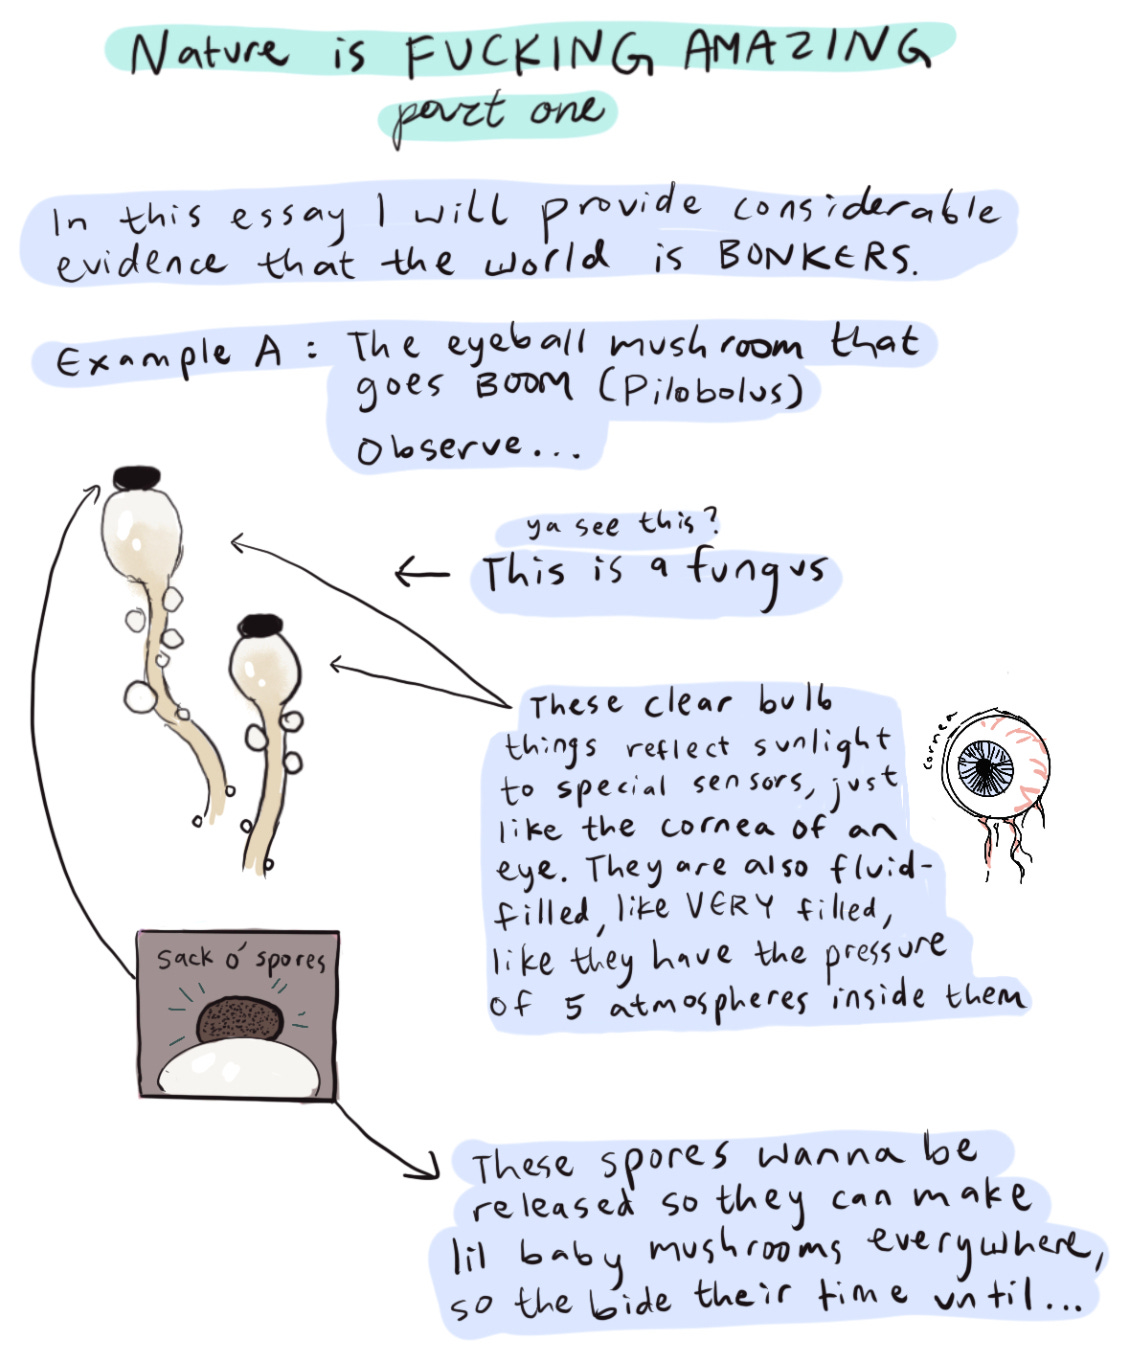 Nature is FUCKING AMAZING
part one
In this essay I will provide considerable
evidence that the world is BONKERS.
Example A: The eyeball mushroom that
goes BOOM (Pilobolus)
Observe...
ya see this?
This is a fungus
These clear bulb
things reflect sunlight
to special sensors, just
like the cornea of an
eye. They are also fluid-
filled, like VERY filled,
like they have the pressure
of 5 atmospheres inside them
cornea
Sack o' spores
These spores wanna be
released so they can make
lil baby mushrooms everywhere,
so the bide their time until...